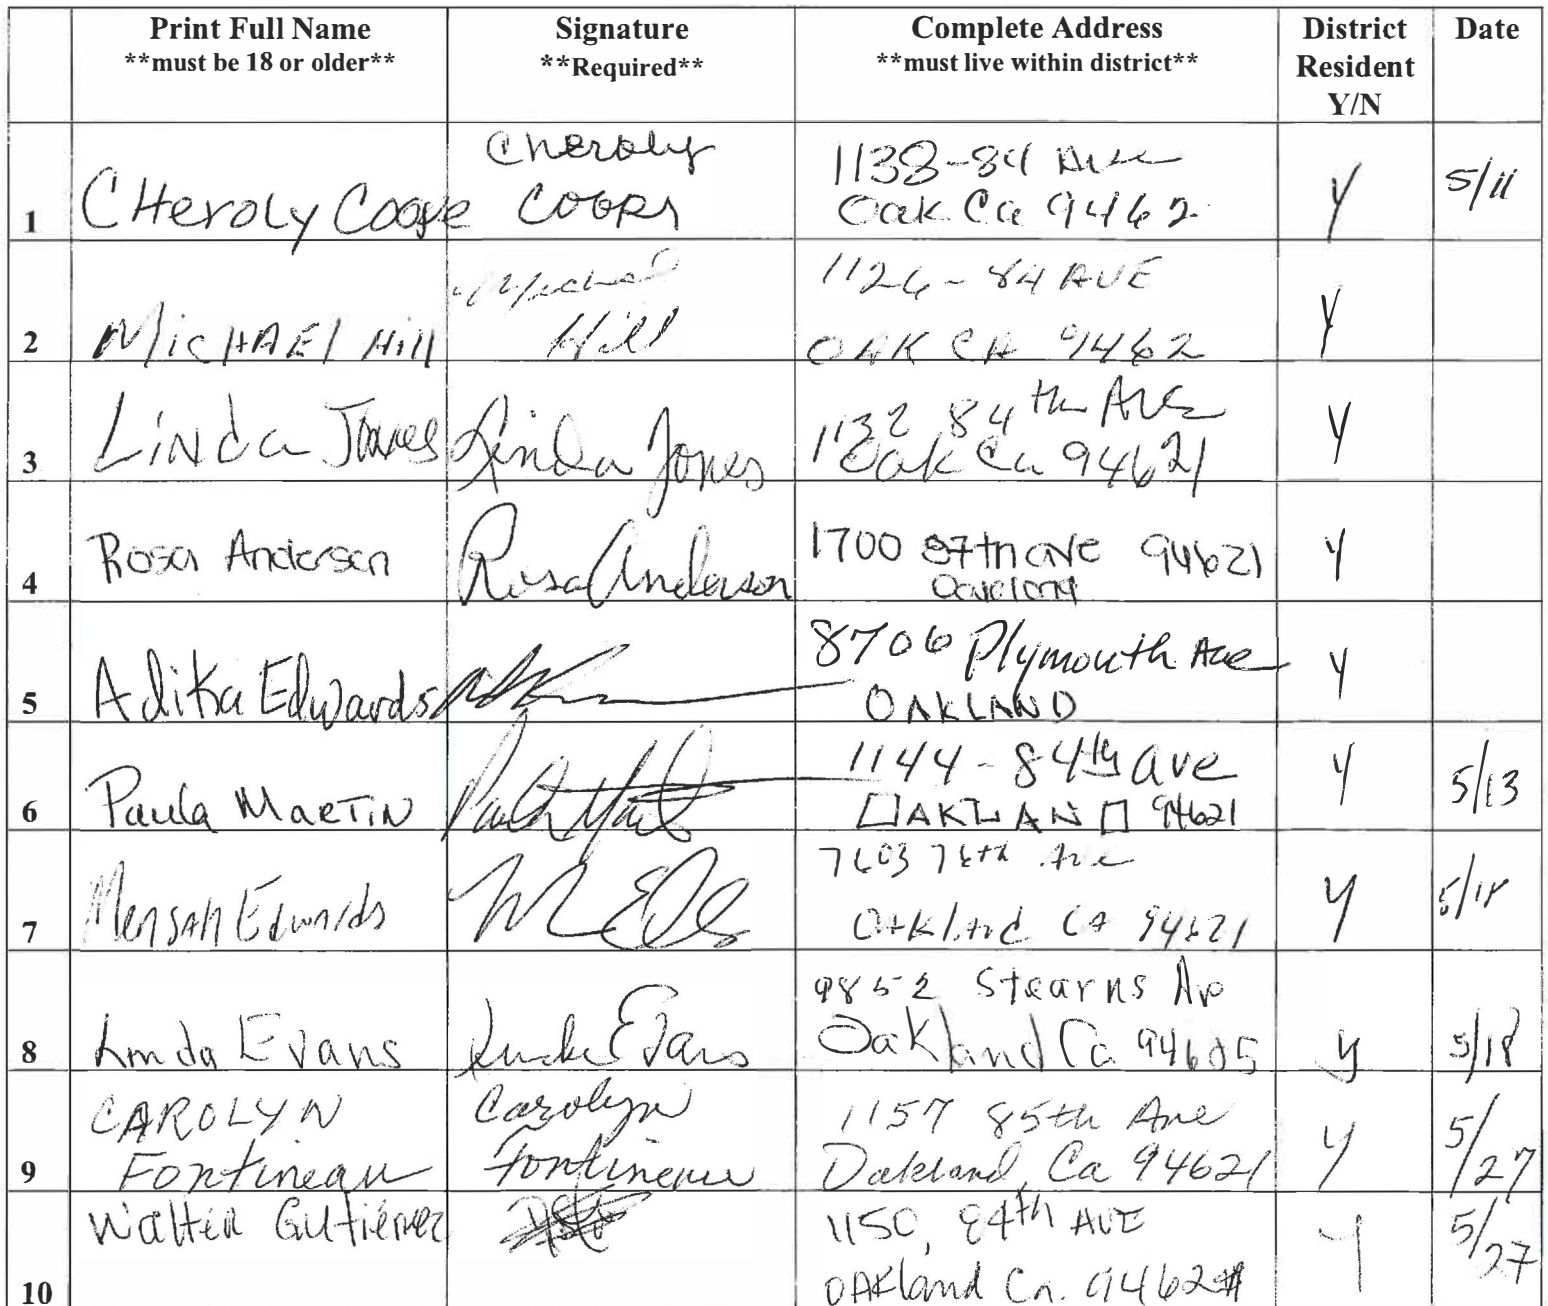 Print Full Name
**must be 18 or older**
Signature
**Required**
Complete Address
**must live within district**
District
Resident
Y/N
Date
1
CHeroly
Cheroly
1138-84 Ave
Oak Ca 9462
Y
5/11
2
MicHAEl Hill
Michael
Hill
1126-84 AVE
OAK CA 9462
Y
3
LiNda Jones
Linda Jones
1132 84th Ave
Oak Ca 94621
Y
4
Rosa Anderson
Rosa Anderson
1700 87th ave 94621
Oakland
Y
5
Adika Edwards
8706 Plymouth Ave
OAKLAND
Y
6
Paula MARTIN
1144-84th ave
OAKLAND 94621
Y
5/13
7
Mensah Edwards
Ave
Oakland CA 94621
Y
5/18
8
Linda Evans
Linda Evans
9852 Stearns Av
Oakland Ca 94605
y
5/18
9
CAROLYN
Fontineau
Carolyn
Fontineau
1157 85th Ave
Oakland, Ca 94621
Y
5/27
10
Walter Gutierrez
1150, 84th AVE
OAKland Ca.
Y
5/27